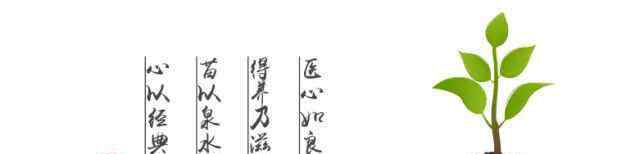 医心如良
得养乃滋
苗以泉水
心以经典